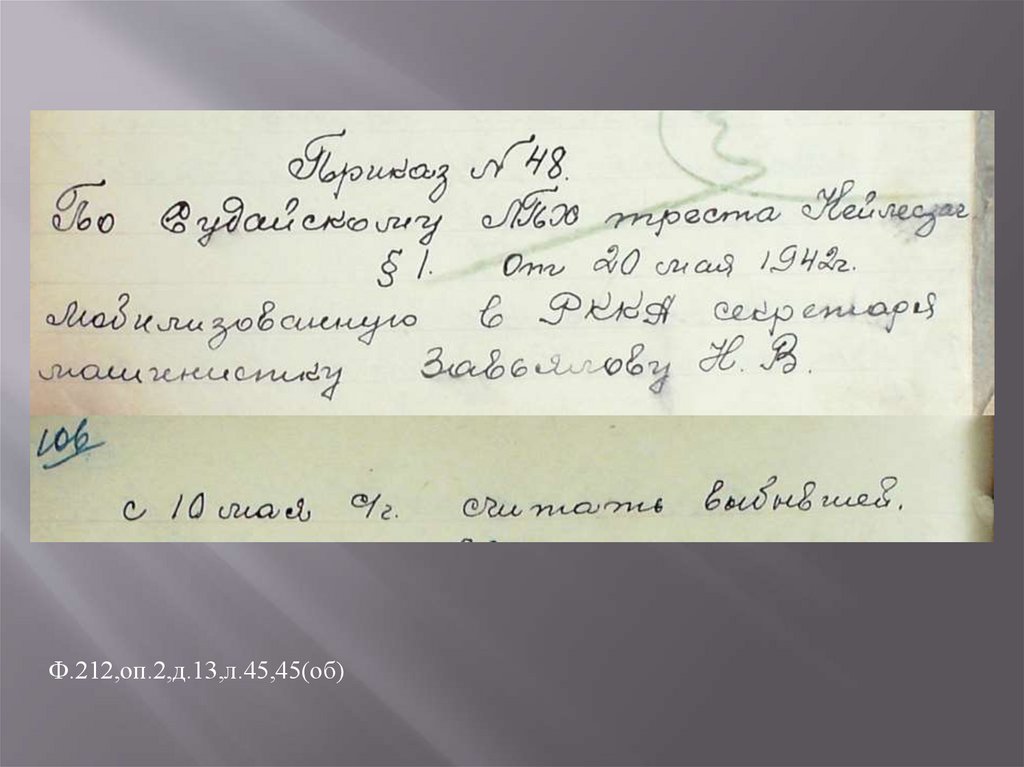 Приказ № 48.
По Судайскому ЛПХ треста Нейлесзаг
§ 1. от 20 мая 1942г.
мобилизованную в РККА секретаря
машинистку Завьялову Н. В.
с 10 мая с/г. считать выбывшей.
Ф.212,оп.2,д.13,л.45,45(об)